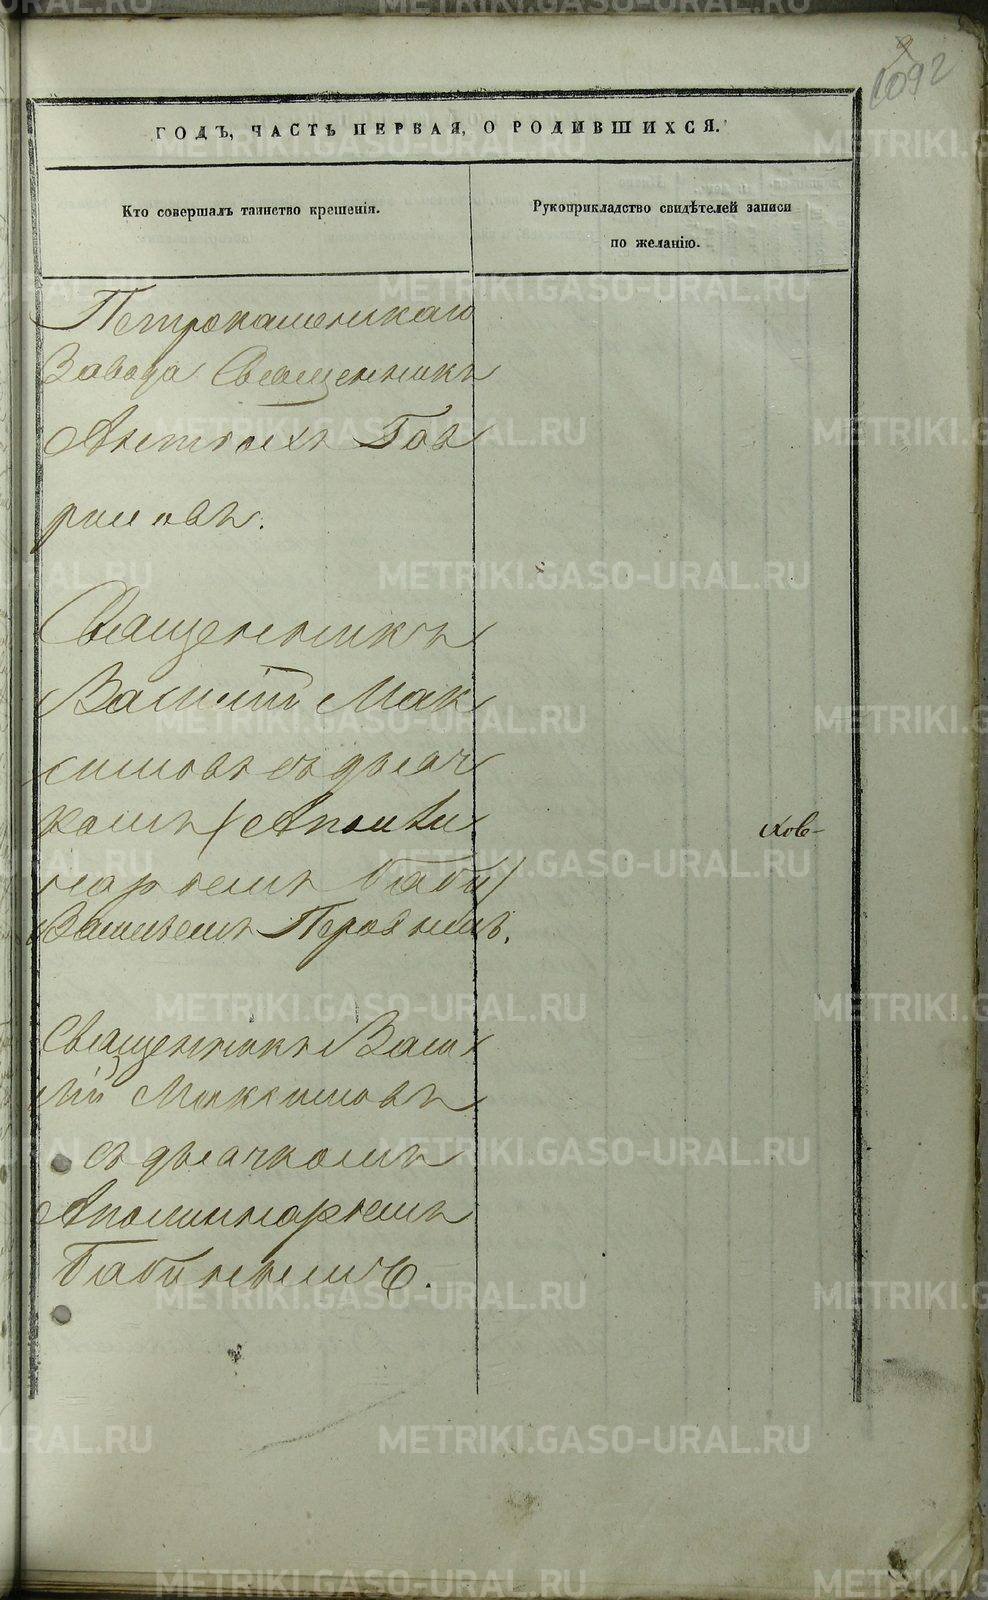 1092
ГОДЪ, ЧАСТЬ ПЕРВАЯ, О РОДИВШИХСЯ.
Кто совершалъ таинство крещенія.
Рукоприкладство свидѣтелей записи
по желанію.
Петрокаменскаго
Завода Священникъ
Гав
риловъ.
Священникъ
Василій Мак
симовъ съ дьяч
комъ (Аполли
наріемъ Баби)
Васильемъ
Священникъ Васи
лій Максимовъ
съ дьячкомъ
Аполинаріемъ
METRIKI.GASO-URAL.RU